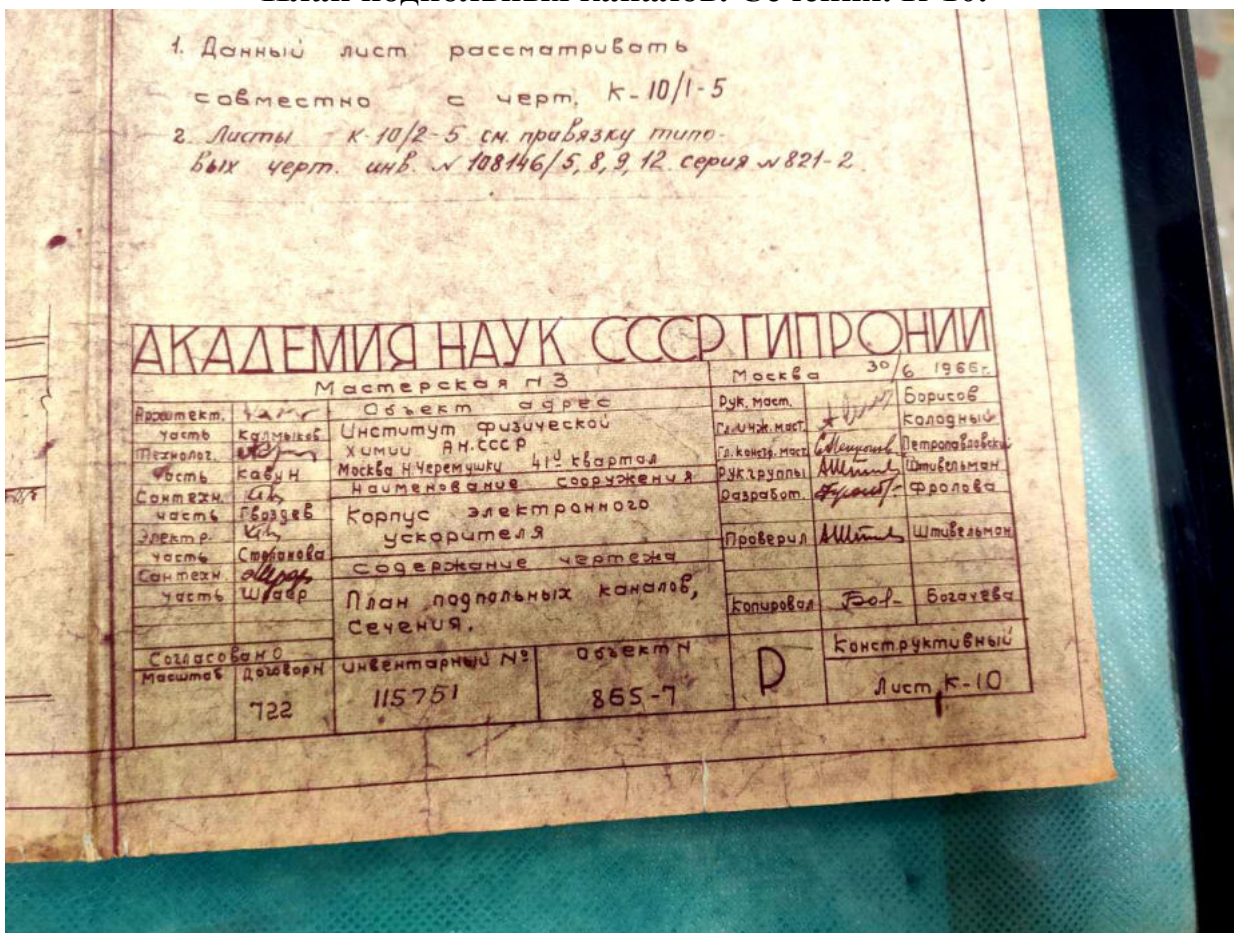 План подпольных каналов. Сечения. К-10.
1. Данный лист рассматривать
совместно с черт. К-10/1-5
2. Листы К-10/2-5 см. привязку типо-
вых черт. инв. № 108146/5, 8, 9, 12. серия № 821-2.
АКАДЕМИЯ НАУК СССР ГИПРОНИИ
Мастерская №3
Москва 30/6 1966г.
Архитект.
часть Калмыков
Технолог.
часть Кавун
Сантехн.
часть Гвоздев
Электр.
часть
Сантехн.
часть
Согласовано
Объект адрес
Институт физической
химии АН.СССР
Москва Н.Черемушки 41й квартал
Наименование сооружения
Корпус электронного
ускорителя
Содержание чертежа
План подпольных каналов,
Сечения.
Рук. маст. Борисов
Гл. инж. маст. Колодный
Гл. констр. маст. Петропавловский
Рук.группы Штивельман
Разработ. Фролова
Проверил Штивельман
Копировал Богачева
Масштаб Договор N Инвентарный № Объект N
722 115751 865-7
Р
Конструктивный
Лист К-10